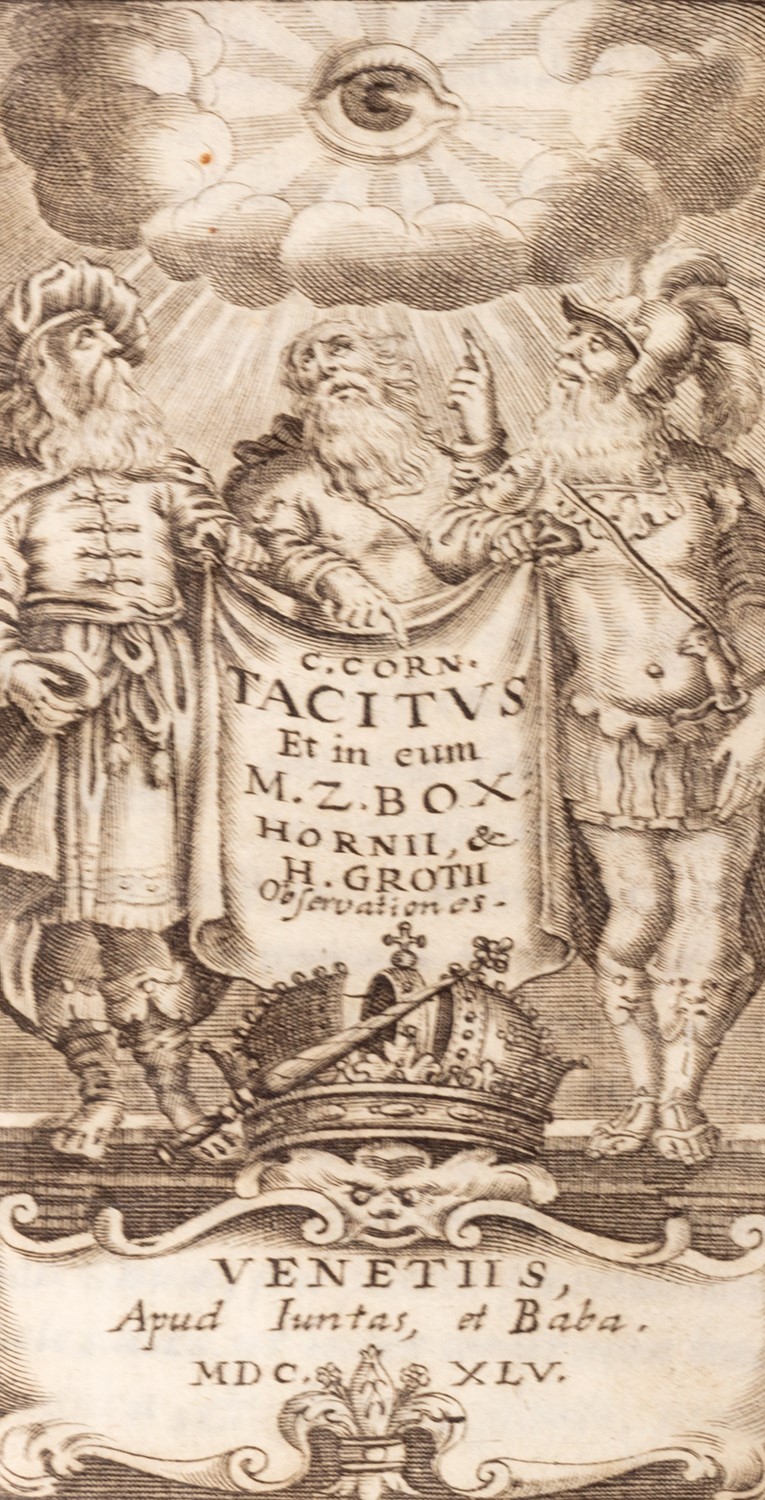 C. CORN.
TACITVS
Et in eum
M. Z. BOX
HORNII, &
H. GROTII
Observationes.
VENETIIS,
Apud Iuntas, et Baba.
MDC. XLV.